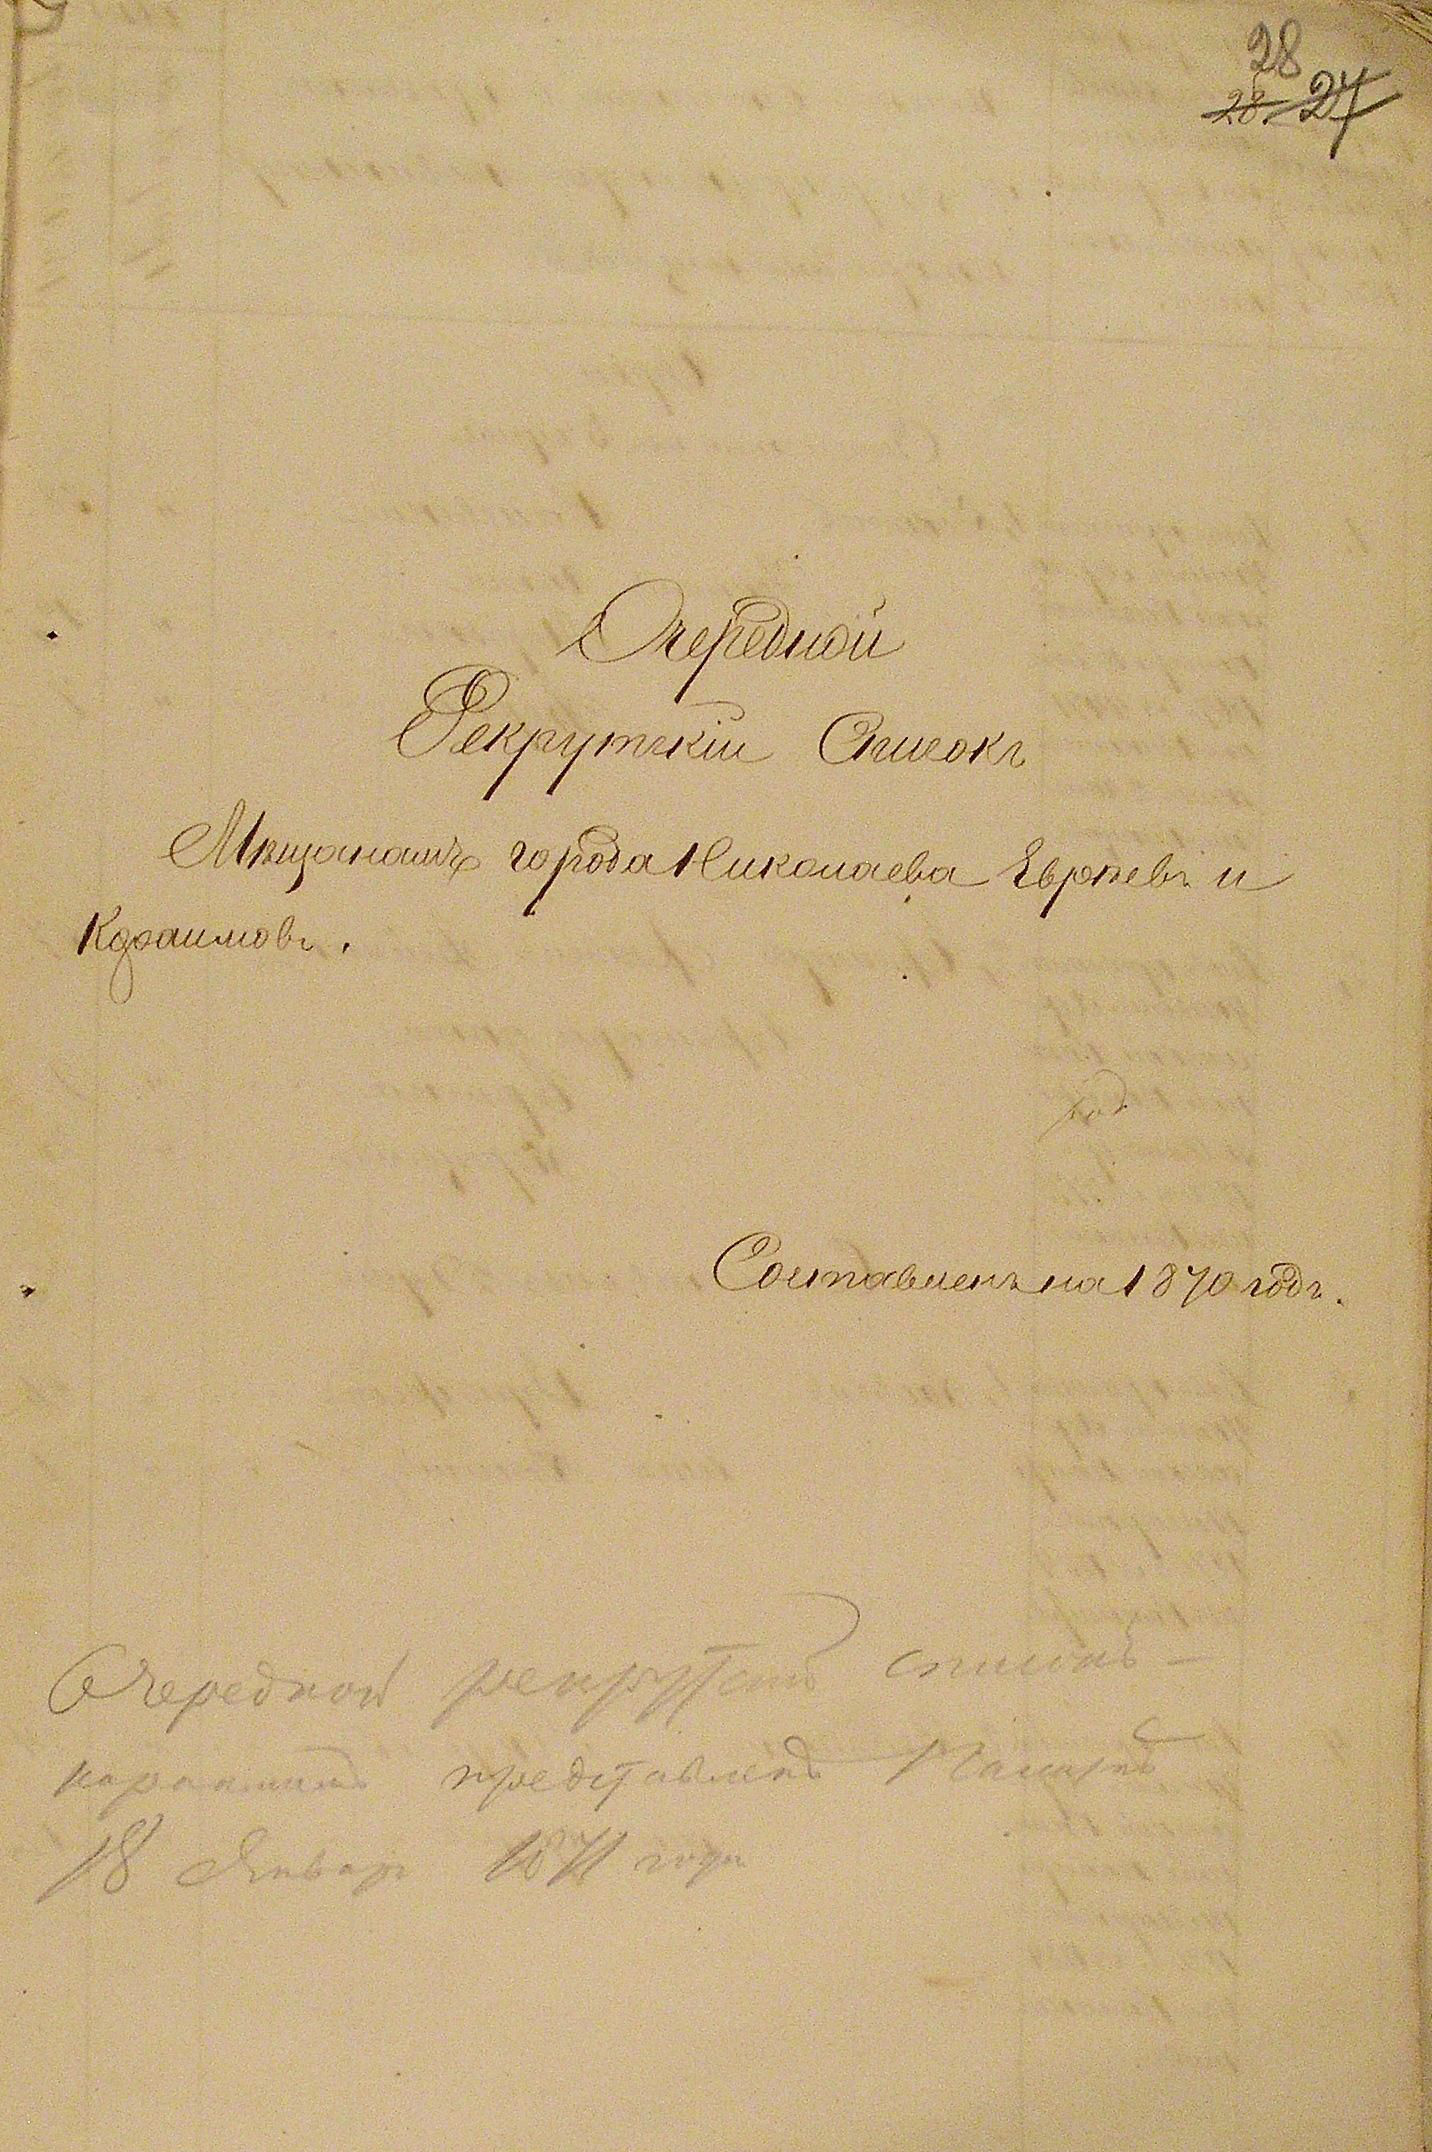 28
28 27
Очередной
Рекрутскій Списокъ
Мѣщанамъ города Николаева Евреевъ и
Караимовъ.
Составленъ на 1870 годъ.
Очередной рекрутскій списокъ —
караимамъ представленъ Палатѣ
18 Января 1871 года